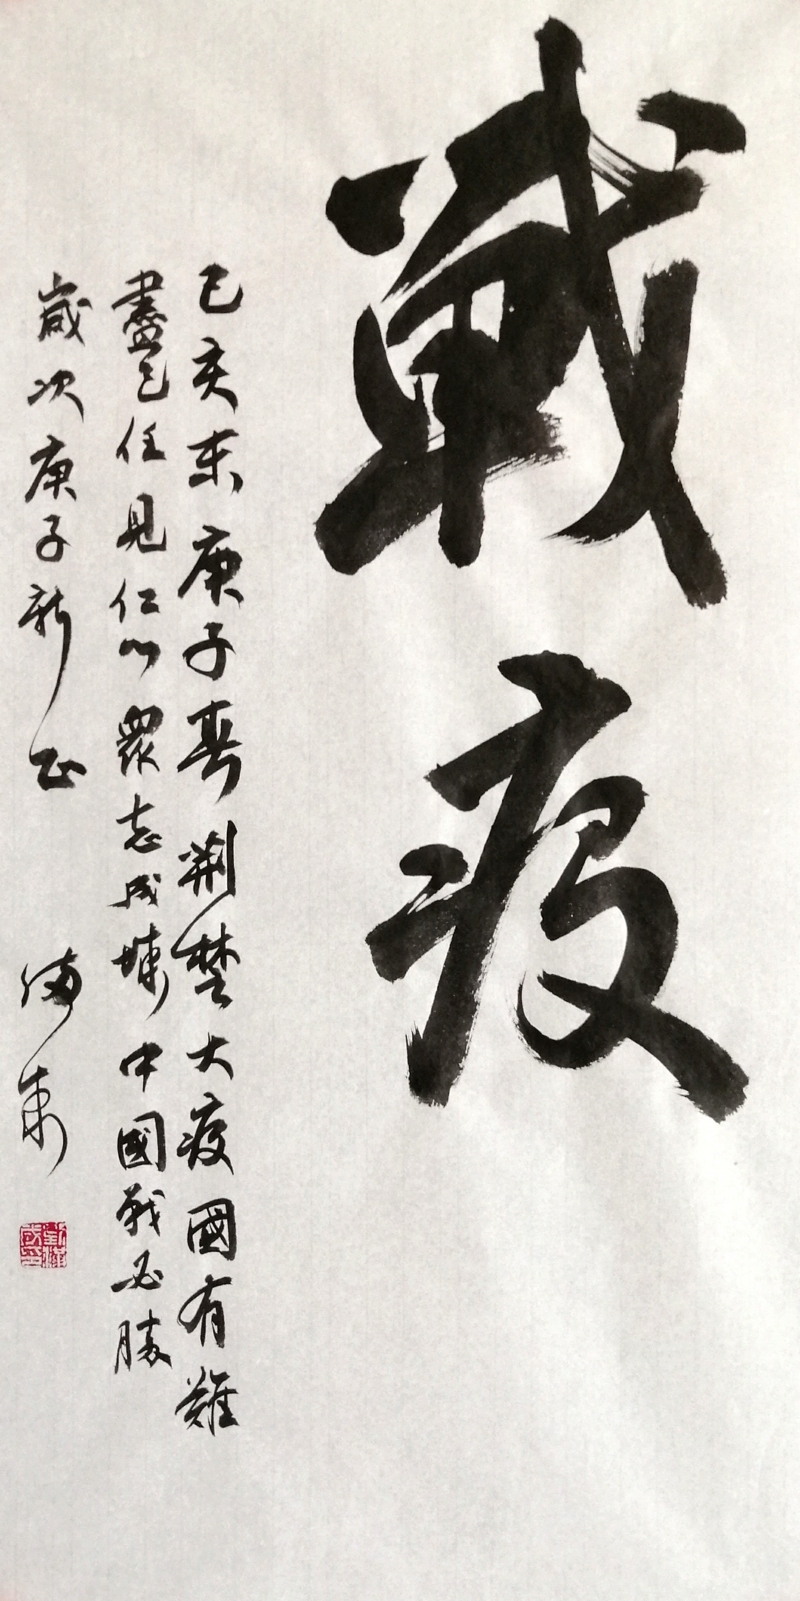 戰疫
己亥末庚子春荆楚大疫國有難
盡己任見仁心衆志成城中國戰必勝
歲次庚子新正